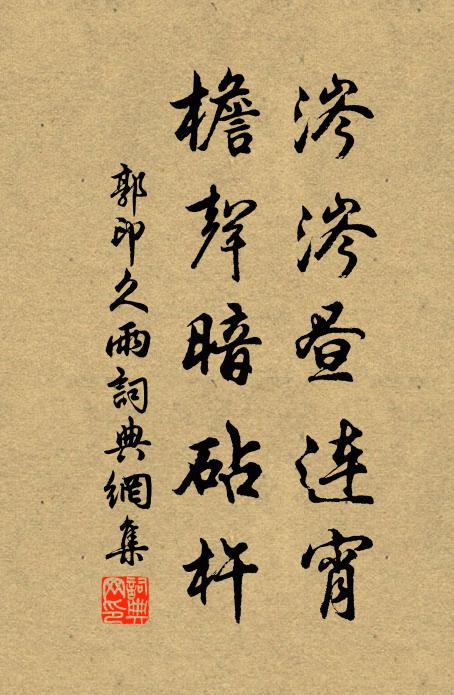 涔涔昼連宵
檐聲暗砧杵
郭印久雨詞典網集
詞典
网印